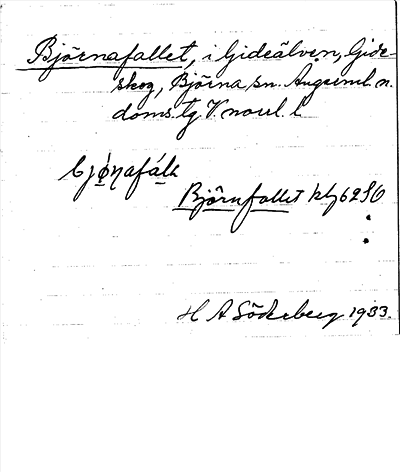 Björnafallet, i Gideälven, Gide-
skog, Björna sn. Ångerml. n.
doms. tg V. norrl. l
bjø̱ṇafáḷḷ
Björnfallet kbl 62 SO
H A Söderberg 1933.